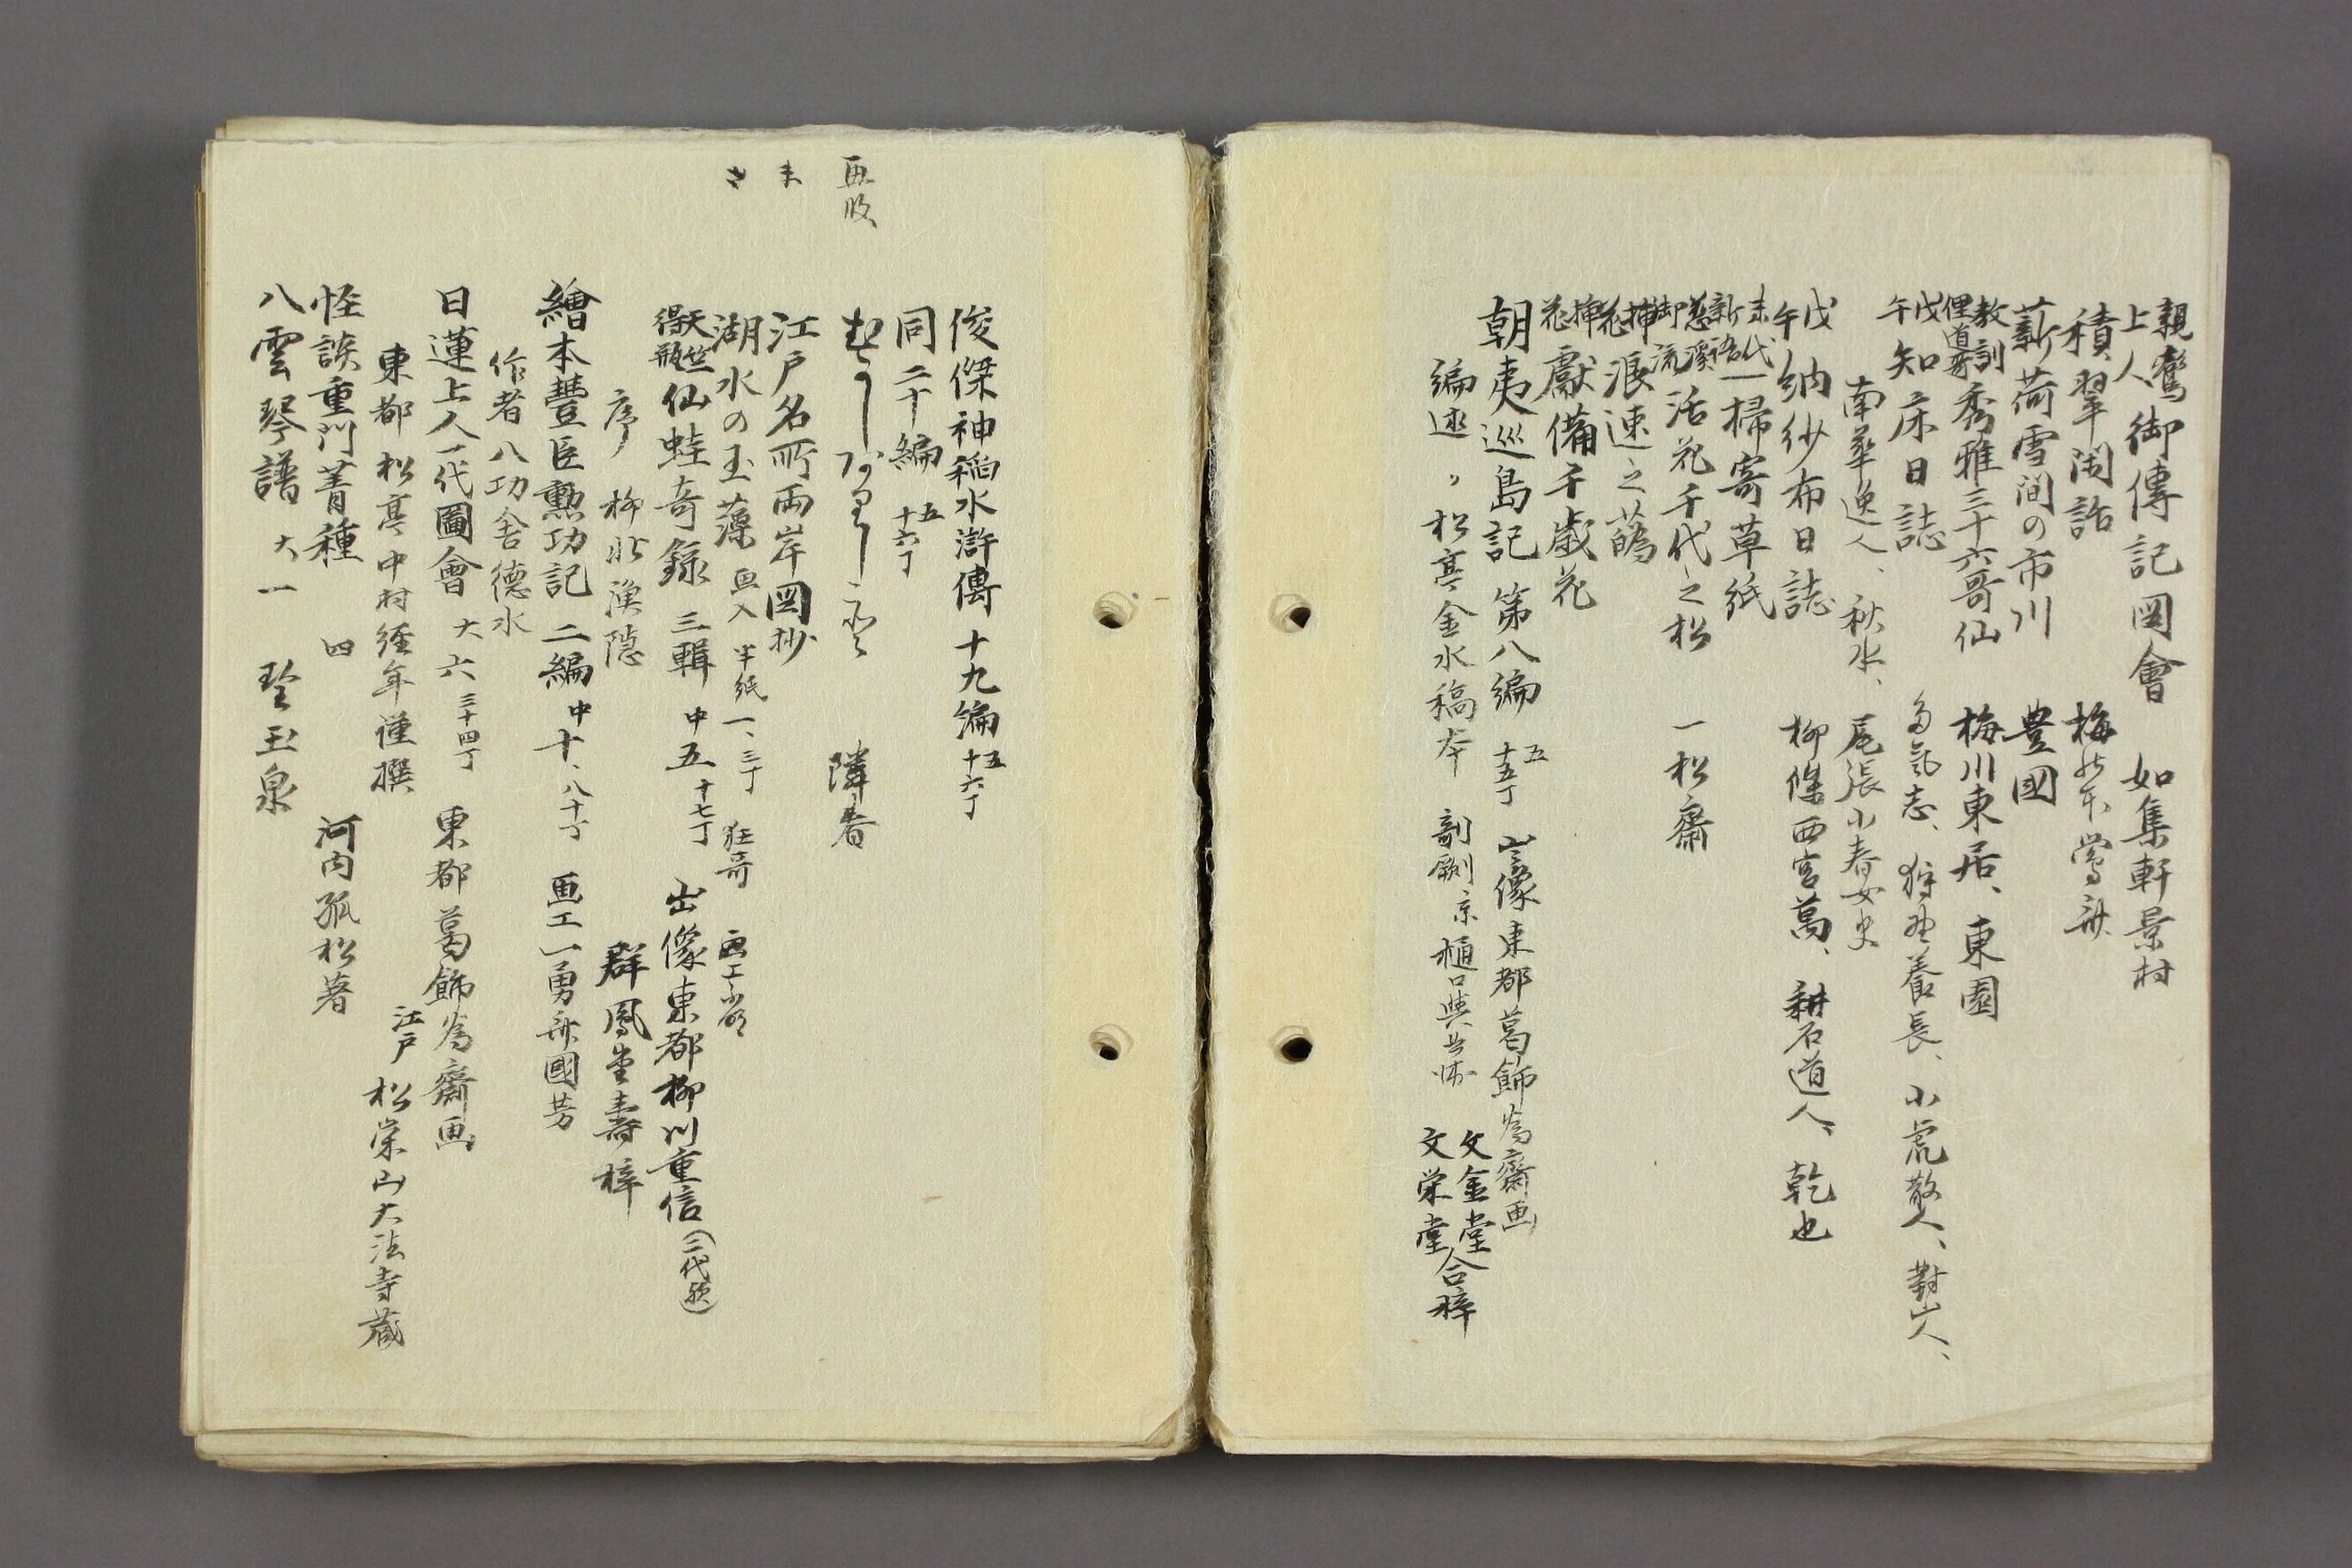 親鸞上人御傳記図會　如集軒景村
積翠閑話　梅の本鶯斎
薪荷雪間の市川　豊國
教訓俚道哥秀雅三十六哥仙　梅川東居、東園
戊午知床日誌　多気志、狩野養長、小虎散人、對山人、
南華逸人、秋水、尾張小春女史
戊午納紗布日誌　柳條西宮蔦、耕石道人、乾也
末代新語一掃寄草紙
慈溪御流活花千代之松　一松齋
挿花浪速之蘤
挿花獻備千歳花
朝夷巡島記　第八編　五　十五丁　出像東都葛飾為齋画
編述　松亭金水稿本　剞劂京樋口與兵衛　文金堂 文栄堂合梓
俊傑神稲水滸傳　十九編　五　十六丁
同二十編　五　十六丁
隣春
江戸名所両岸図抄
湖水の玉藻　画入　半紙一、三丁　狂哥　画工
天竺得瓶仙蛙奇錄　三輯　中五　十七丁　出像東都柳川重信（二代然）
序　柳北漁隠　群鳳堂壽梓
繪本豐臣勲功記　二編　中十、八十丁　画工一勇斎國芳
作者八功舎德水
日蓮上人一代圖會　大六　三十四丁　東都葛飾為齋画
東都松亭中村経年謹撰　江戸松栄山大法寺蔵
怪談重門菁種　四　河内孤松著
八雲琴譜　大一　琴玉泉